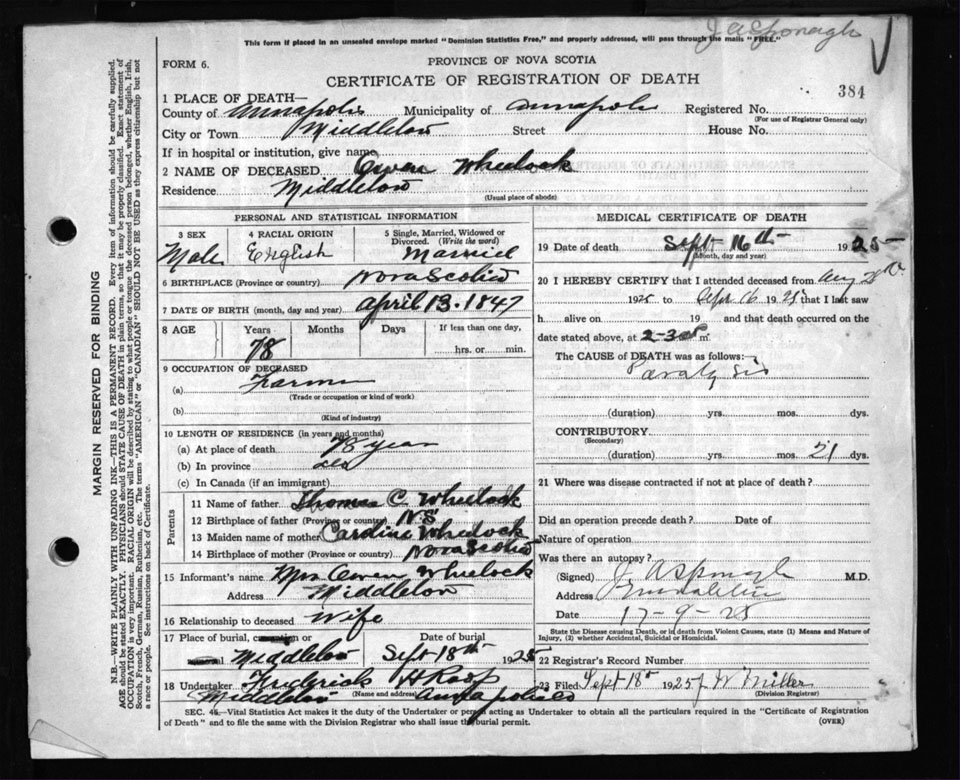 J A Sponagle
This form if placed in an unsealed envelope marked "Dominion Statistics Free," and properly addressed, will pass through the mails "FREE."
FORM 6.
PROVINCE OF NOVA SCOTIA
CERTIFICATE OF REGISTRATION OF DEATH
384
1 PLACE OF DEATH—
County of Annapolis Municipality of Annapolis Registered No.
(For use of Registrar General only)
City or Town Middleton Street House No.
If in hospital or institution, give name
2 NAME OF DECEASED Owen Wheelock
Residence Middleton
(Usual place of abode)
PERSONAL AND STATISTICAL INFORMATION
3 SEX 4 RACIAL ORIGIN 5 Single, Married, Widowed or Divorced. (Write the word)
Male English Married
6 BIRTHPLACE (Province or country) Nova Scotia
7 DATE OF BIRTH (month, day and year) April 13. 1847
8 AGE Years Months Days If less than one day,
78 hrs. or min.
9 OCCUPATION OF DECEASED
(a) Farmer
(Trade or occupation or kind of work)
(b)
(Kind of industry)
10 LENGTH OF RESIDENCE (in years and months)
(a) At place of death 78 year
(b) In province
(c) In Canada (if an immigrant)
Parents
11 Name of father Thomas C. Wheelock
12 Birthplace of father (Province or country) N.S
13 Maiden name of mother Cardina Wheelock
14 Birthplace of mother (Province or country) Nova Scotia
15 Informant's name Mrs Owen Wheelock
Address Middleton
16 Relationship to deceased Wife
17 Place of burial, cremation or removal Middleton
Date of burial Sept 18th 1925
18 Undertaker Frederick H Roop
(Name and address)
Middleton Annapolis Co
MEDICAL CERTIFICATE OF DEATH
19 Date of death Sept 16th 1925
(Month, day and year)
20 I HEREBY CERTIFY that I attended deceased from Aug 28th
1925 to Sept 16 1925 that I last saw
h alive on 19 and that death occurred on the
date stated above, at 2-30 m.
The CAUSE of DEATH was as follows:
Paralysis
(duration) yrs. mos. dys.
CONTRIBUTORY
(Secondary)
(duration) yrs. mos. 21 dys.
21 Where was disease contracted if not at place of death?
Did an operation precede death? Date of
Nature of operation
Was there an autopsy?
(Signed) J A Sponagle M.D.
Address Middleton
Date 17-9-25
State the Disease causing Death, or in death from Violent Causes, state (1) Means and Nature of Injury, (2) whether Accidental, Suicidal or Homicidal.
22 Registrar's Record Number
23 Filed Sept 18th 1925 J W Miller
(Division Registrar)
SEC. 46—Vital Statistics Act makes it the duty of the Undertaker or person acting as Undertaker to obtain all the particulars required in the "Certificate of Registration
of Death" and to file the same with the Division Registrar who shall issue the burial permit.
(OVER)
MARGIN RESERVED FOR BINDING
N.B.—WRITE PLAINLY WITH UNFADING INK—THIS IS A PERMANENT RECORD. Every item of information should be carefully supplied.
AGE should be stated EXACTLY. PHYSICIANS should STATE CAUSE OF DEATH in plain terms, so that it may be properly classified. Exact statement of
OCCUPATION is very important. RACIAL ORIGIN will be described by stating to what people or tongue the deceased person belonged, whether English, Irish,
Scotch, French, German, Russian, Ruthenian, etc. The terms "AMERICAN" or "CANADIAN" SHOULD NOT BE USED as they express citizenship but not
a race or people. See instructions on back of Certificate.